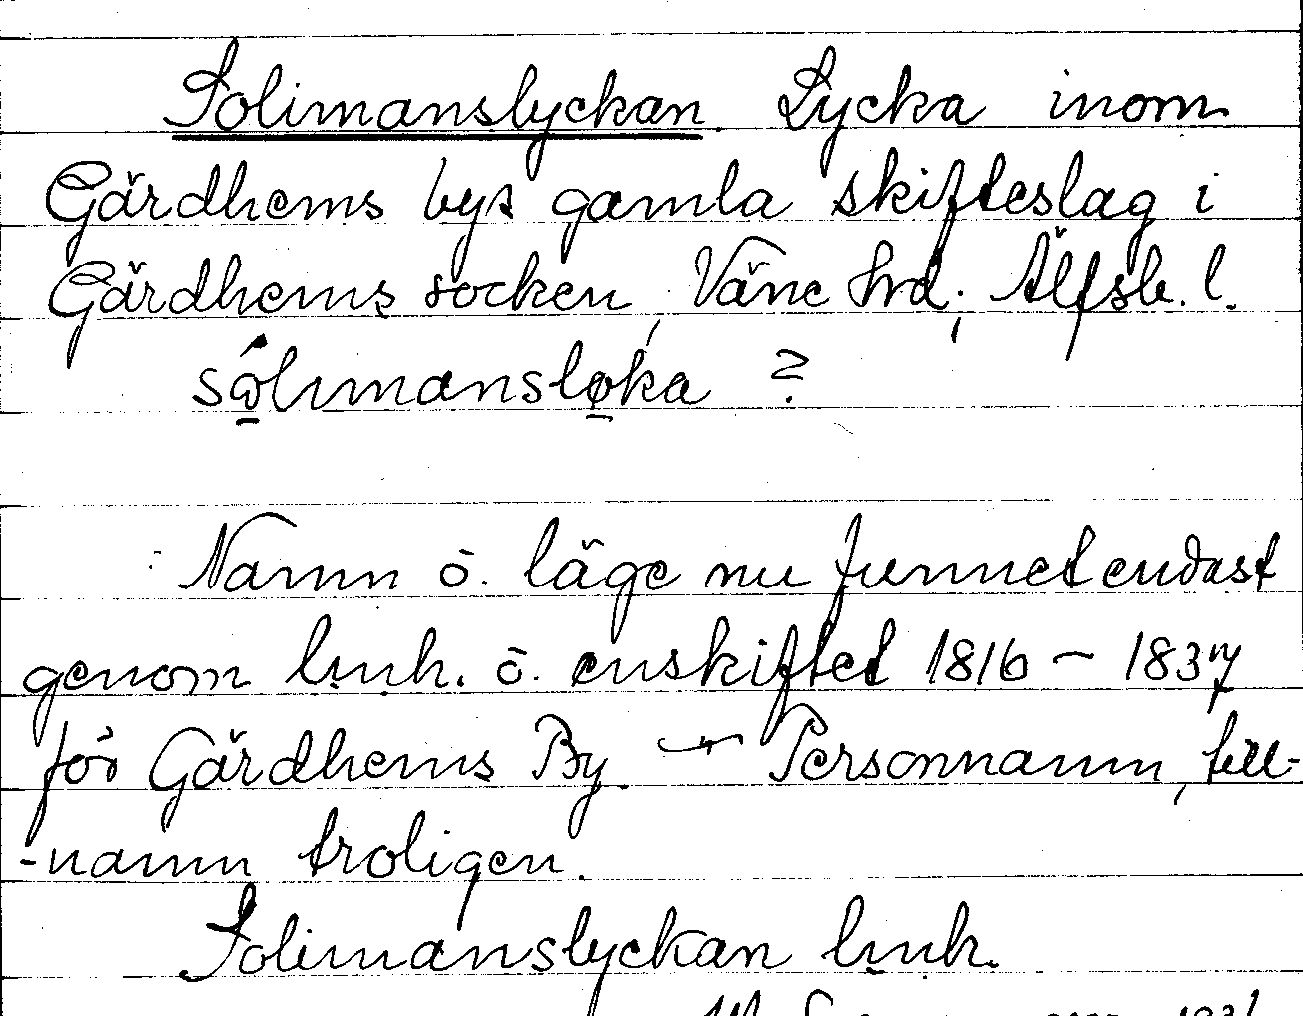 Solimanslyckan. Lycka inom
Gärdhems bys gamla skifteslag i
Gärdhems socken, Väne hrd, Älfsb. l.
sólimansløka ?
Namn o. läge nu funnet endast
genom lmh. o. enskiftet 1816 – 1837
för Gärdhems By. – Personnamn, till-
-namn troligen.
Solimanslyckan lmh.